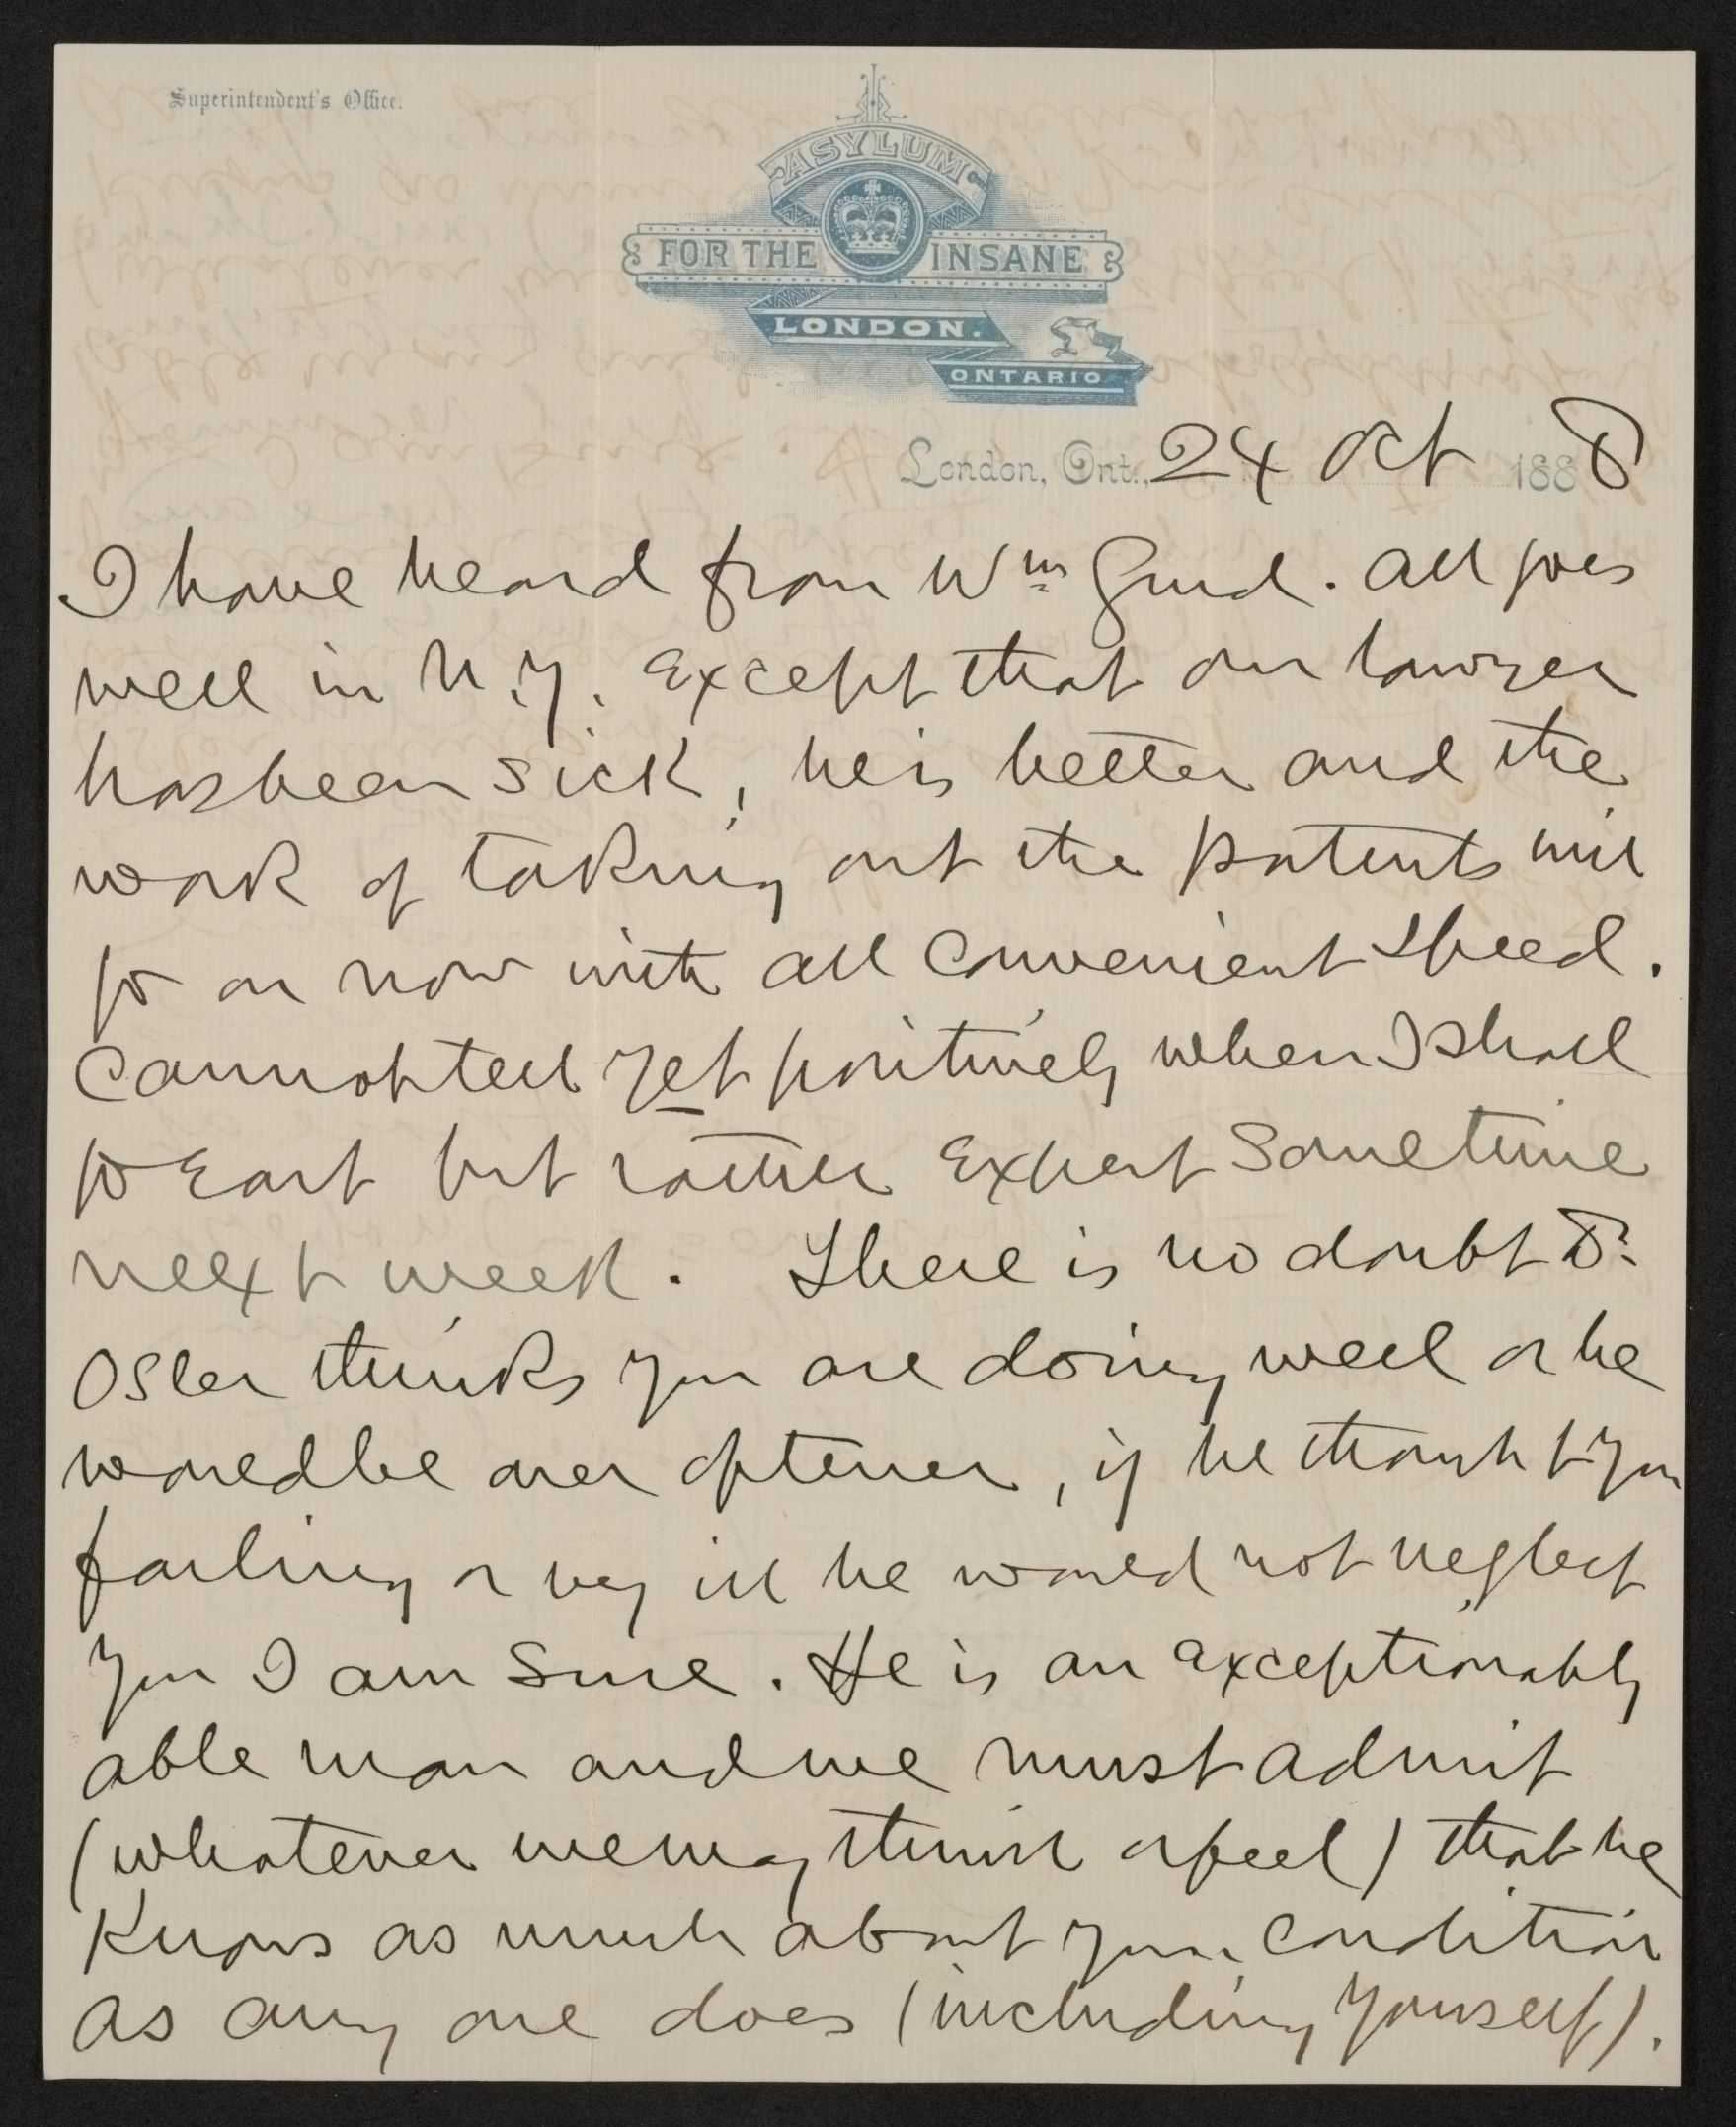 Superintendent's Office.
ASYLUM
FOR THE INSANE
LONDON.
ONTARIO
London, Ont., 24 Oct 1888
I have heard from Wm Gurd. All goes
well in N.Y. Except that our lawyer
has been sick, he is better and the
work of taking out the patents will
go on now with all convenient speed.
Cannot tell yet positively when I shall
go East but rather Expect Sometime
neext week. There is no doubt Dr
Osler thinks you are doing well or he
would be over oftener, if he thought you
failing or very ill he would not neglect
you I am Sure. He is an exceptionably
able man and we must admit
(whatever we may think or feel) that he
Knows as much about your condition
as any one does (including yourself).